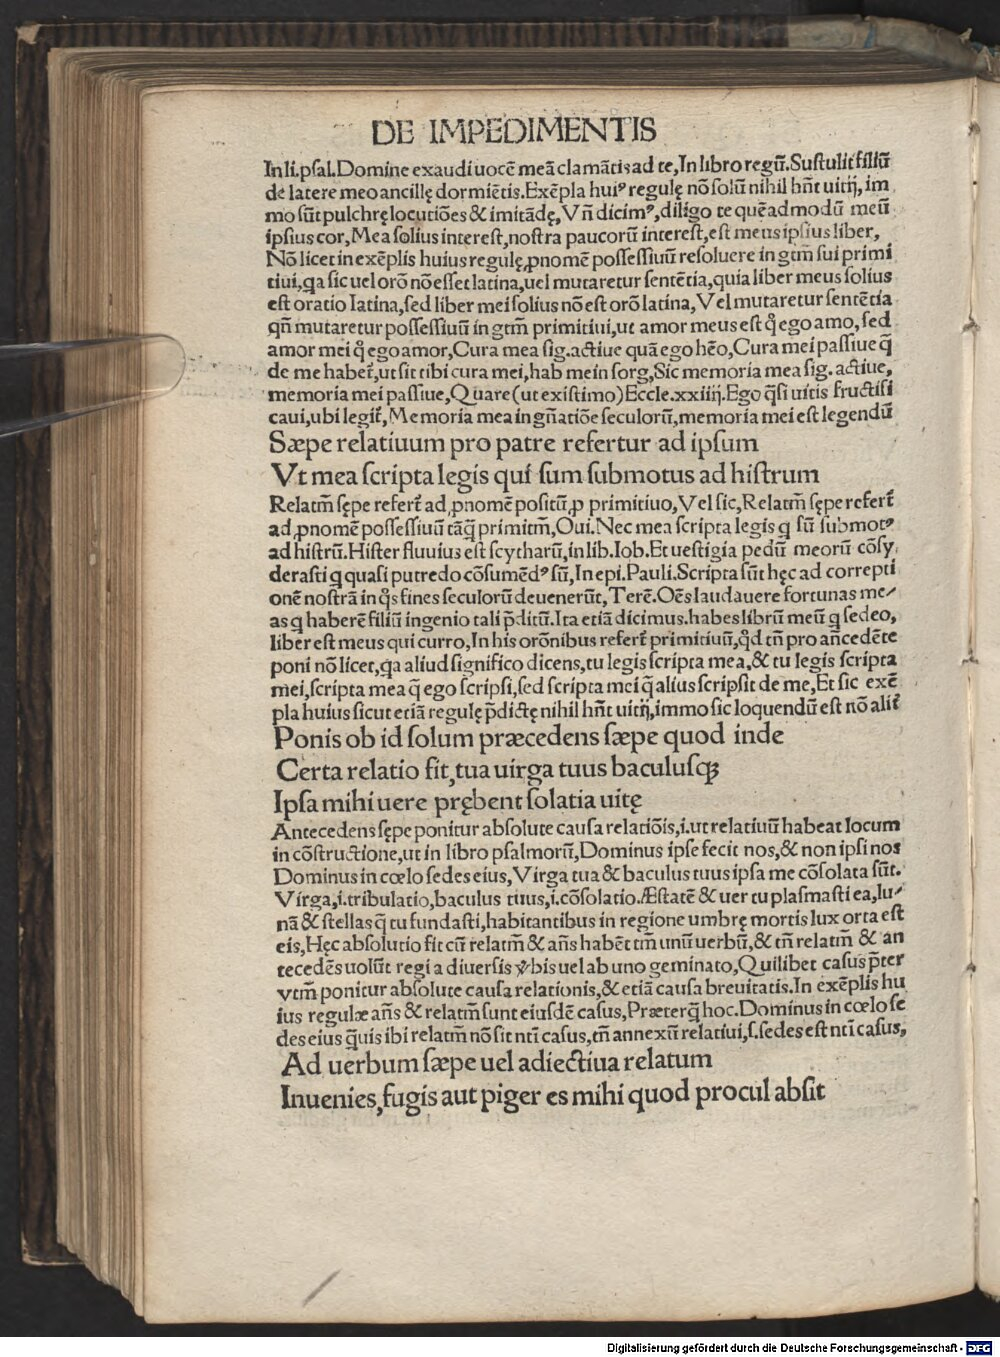 DE IMPEDIMENTIS
In li.psal.Domine exaudi uocē meā clamātis ad te,In libro regū.Sustulit filiū
de latere meo ancillę dormiētis.Exēpla huiꝰ regulę nō solū nihil hn̄t uitij, im
mo sūt pulchrę locutiōes & imitādę, Vn̄ dicimꝰ, diligo te quēadmodū meū
ipsius cor, Mea solius interest, nostra paucorū interest, est meus ipsius liber,
Nō licet in exēplis huius regulę, ꝓnomē possessiuū resoluere in gtm̄ sui primi
tiui, qa sic uel orō nō esset latina, uel mutaretur sentētia, quia liber meus solius
est oratio latina, sed liber mei solius nō est orō latina, Vel mutaretur sentētia
qn̄ mutaretur possessiuū in gtm̄ primitiui, ut amor meus est q̄ ego amo, sed
amor mei q̄ ego amor, Cura mea sig.actiue quā ego hēo, Cura mei passiue q̄
de me habet̄, ut sit tibi cura mei, hab me in sorg, Sic memoria mea sig. actiue,
memoria mei passiue, Quare (ut existimo) Eccle.xxiiij.Ego q̄si uitis fructifi
caui, ubi legit̄, Memoria mea in gn̄atiōe seculorū, memoria mei est legendū
Sæpe relatiuum pro patre refertur ad ipsum
Vt mea scripta legis qui sum submotus ad histrum
Relatm̄ sępe refert̄ ad ꝓnomē positū ꝓ primitiuo, Vel sic, Relatm̄ sępe refert̄
ad ꝓnomē possessiuū tāq̄ primitm̄, Oui.Nec mea scripta legis q sū submotꝰ
ad histrū.Hister fluuius est scytharū, in lib.Iob.Et uestigia pedū meorū cōsy
derasti q quasi putredo cōsumēdꝰ sū, In epi.Pauli.Scripta sūt hęc ad correpti
onē nostrā in q̄s fines seculorū deuenerūt, Terē.Oēs laudauere fortunas me⸗
as q haberē filiū ingenio tali p̄ditū.Ita etiā dicimus.habes librū meū q sedeo,
liber est meus qui curro, In his orōnibus refert̄ primitiuū, q̄d tn̄ pro an̄cedēte
poni nō licet, qa aliud significo dicens, tu legis scripta mea, & tu legis scripta
mei, scripta mea q̄ ego scripsi, sed scripta mei q̄ alius scripsit de me, Et sic exē
pla huius sicut etiā regulę p̄dictę nihil hn̄t uitij, immo sic loquendū est nō alit̄
Ponis ob id solum præcedens sæpe quod inde
Certa relatio fit, tua uirga tuus baculusqꝫ
Ipsa mihi uere prębent solatia uitę
Antecedens sępe ponitur absolute causa relatiōis, i.ut relatiuū habeat locum
in cōstructione, ut in libro psalmorū, Dominus ipse fecit nos, & non ipsi nos
Dominus in cœlo sedes eius, Virga tua & baculus tuus ipsa me cōsolata sūt.
Virga, i.tribulatio, baculus tuus, i.cōsolatio.Æstatē & uer tu plasmasti ea, lu⸗
nā & stellas q̄ tu fundasti, habitantibus in regione umbrę mortis lux orta est
eis, Hęc absolutio fit cū relatm̄ & an̄s habēt tm̄ unū uerbū, & tn̄ relatm̄ & an
tecedēs uolūt regi a diuersis v̄bis uel ab uno geminato, Quilibet casus p̄ter
vtm̄ ponitur absolute causa relationis, & etiā causa breuitatis.In exēplis hu
ius regulæ an̄s & relatm̄ sunt eiusdē casus, Præterq̄ hoc.Dominus in cœlo se
des eius q̄uis ibi relatm̄ nō sit nti casus, tn̄ annexū relatiui, s.sedes est nti casus,
Ad uerbum sæpe uel adiectiua relatum
Inuenies, fugis aut piger es mihi quod procul absit
Digitalisierung gefördert durch die Deutsche Forschungsgemeinschaft - DFG